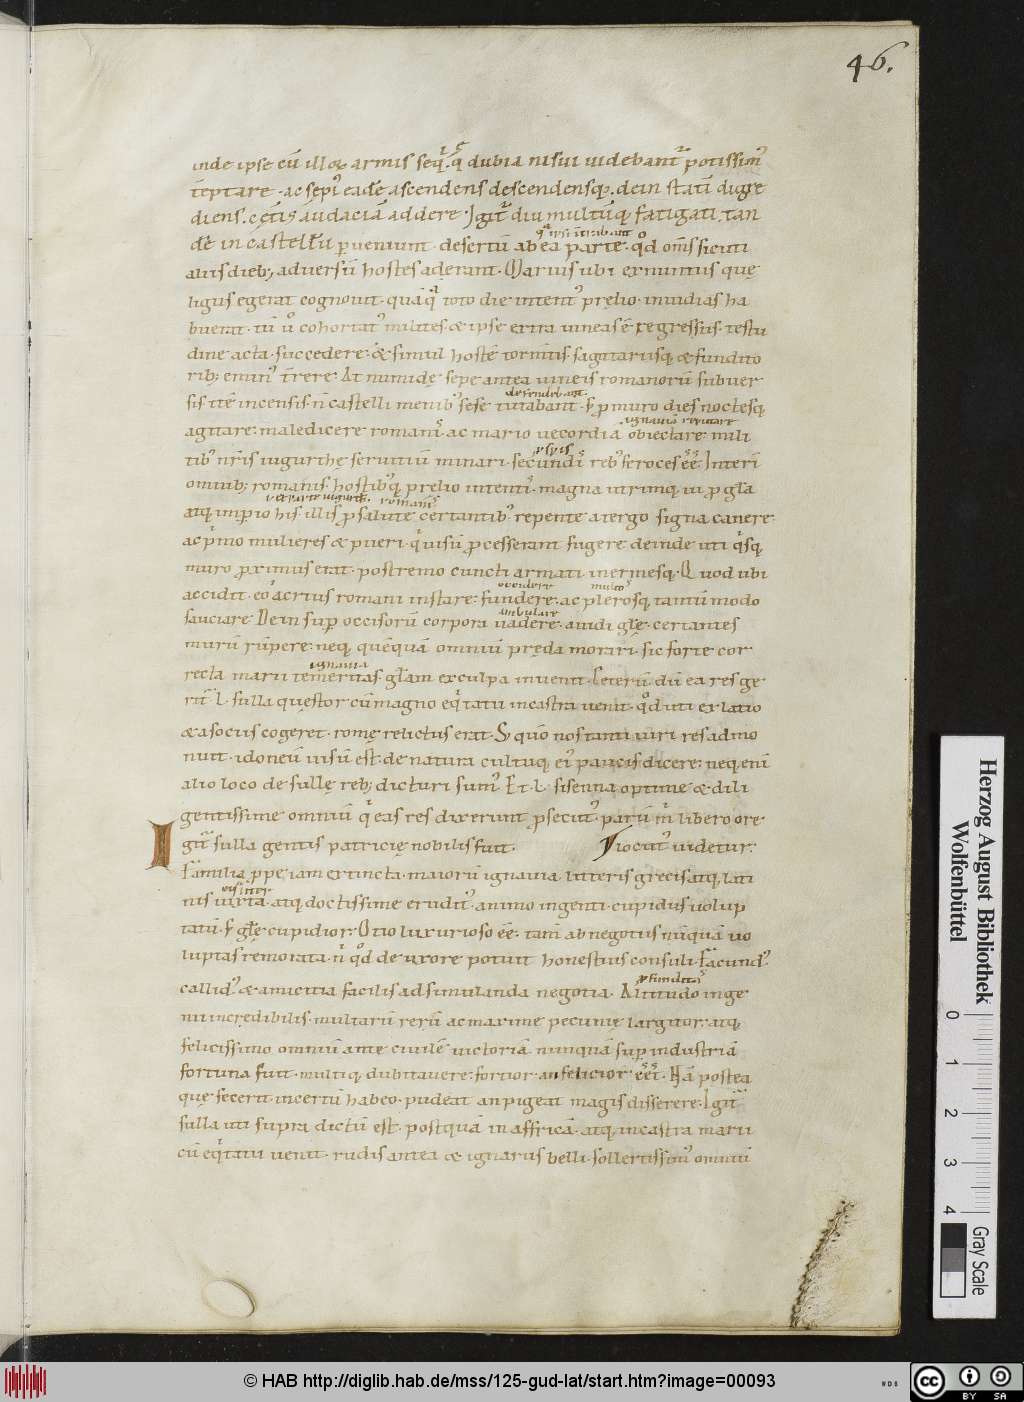 46.
inde ipse cū illoꝝ armis seq̄. q̄ dubia nisui uidebant᷑ potissim᷒
tēptare. ac sepi᷒ eadē ascendens descendensq;. dein statī digre
diens. cęt͛is audaciā addere. Igit᷑ diu multūq; fatigati. tan
dē in castellū perueniunt. desertū ab ea parte. qd̓ om̄s sicuti
aliis dieb; aduersū hostes aderant. Marius ubi ex nuntiis quę
ligus egerat cognouit. quāq̄ toto die intent᷒ prelio. inuidias ha
buerat. tū u᷒o cohortat᷒ milites & ipse extra uineas ēgressus. testu
dine acta. succedere. & simul hostē tormtis. sagitariisq; & fundito
rib; emin᷒ t̄rere. At numidę sepe antea uineis romanorū subuer
sis itē incensis. n̄ castelli menib᷒ sese tutabant. s; p muro dies noctesq;
defendebant
agitare. maledicere romani᷒. ac mario uecordiā obiectare. mili
tib᷒ nr̄is iugurthe seruitiū minari. secundi᷒ reb᷒ feroces ee᷒. Interī
omnib; romanis. hostib᷒q; prelio intenti᷒. magna utrimq; ui p gl̄a
atq; imperio his illis p salute certantib᷒ repente a tergo signa canere
ac p̄mo mulieres & pueri. q̄ uisū pcesserant fugere. deinde uti q̓sq;
muro pximus erat. postremo cuncti armati inermesq;. Quod ubi
accidit. eo acrius romani instare. fundere. ac plerosq; tantū modo
sauciare. Dein sup occisorū corpora uadere. auidi glę. certantes
murū rūpere. neq; quēquā omniū pręda morari. sic forte cor
ambulare
ignauia
recta marii temeritas. gl̄am ex culpa inuenit. Ceterū dū ea res ge
rit᷑. L. sulla questor cū magno eq̓tatu in castra uenit. qd̓ uti ex latio
& a sociis cogeret. romę relictus erat. S; qm̄ nos tanti uiri res admo
nuit. idoneū uisū est de natura cultuq; ei᷒ paucis dicere. neq; enī
alio loco de sullę reb; dicturi sum᷒. Et L. sisenna optime & dili
gentissime omniū q̄ eas res dixerunt psecut᷒. parū m̄ libero ore
Igit᷑ sulla gentis patricię nobilis fuit. locut᷒ uidetur.
Familia ppe iam extincta. maiorū ignauia. litteris grecis atq; lati
nis iuxta. atq; doctissime erudit᷒. animo ingenti. cupidus uolup
tatū. s; glę cupidior. Otio luxurioso ee᷒. tam̄ ab negotiis nūquā uo
luptas remorata. n̄ qd̓ de uxore potuit honestius consuli. Facund᷒.
callid᷒. & amicitia facilis. ad simulanda negotia. Altitudo inge
nii incredibilis. multarū rerū ac maxime pecunię largitor. atq;
felicissimo omniū ante ciuilē uictoriā. nunquā sup industriā
fortuna fuit. multiq; dubitauere. fortior. an felicior eet᷒. Nā postea
que fecerit incertū habeo. pudeat an pigeat magis disserere. Igit᷑
sulla uti supra dictū est. postquā in affricā. atq; in castra marii
cū eq̓tatu uenit. rudis antea & ignarus belli. sollertissim᷒ omniū
Herzog August Bibliothek
Wolfenbüttel
0 1 2 3 4
Gray Scale
© HAB http://diglib.hab.de/mss/125-gud-lat/start.htm?image=00093
WDB
cc BY SA